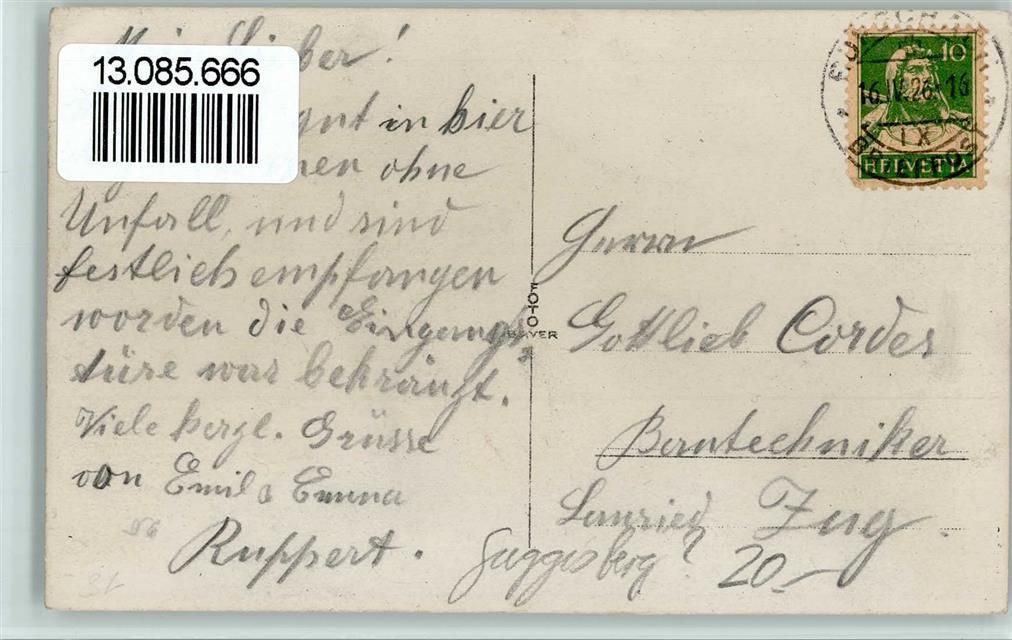 13.085.666
Lieber!
gut in hier
ohne
Unfall, und sind
festlich empfangen
worden die Eingangs
türe war bekränzt.
Viele herzl. Grüsse
von Emil & Emma
Ruppert.
FOTO
BAYER
10
16.IV.26. 16
IX
HELVETIA
Herrn
Gottlieb Cordes
Bautechniker
Zug
Guggisberg?
20.-